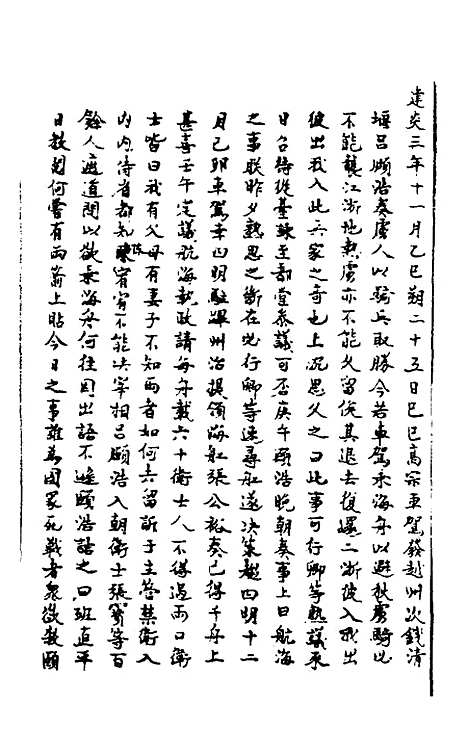 建炎三年十一月乙巳朔二十五日巳巳髙宗車駕發越州次錢清
堰吕頤浩奏虜人以騎兵取勝今若車駕乗海舟以避狄虜騎必
不能襲江浙地熱虜亦不能久留俟其退去復還二浙彼入我出
彼出我入此兵家之竒也上沉思久之曰此事可行卿等熟議辰
日召侍從臺諫至都堂叅議可否庚午頤浩晩朝奏事上曰航海
之事朕昨夕熟思之斷在必行卿等速尋舡遂决策趨四明十二
月己卯車駕幸四明駐蹕州治提領海舡張公裕奏已得千舟上
甚喜壬午定議航海執政請每舟載六十衛士人不得過兩口衛
士皆曰我有父母有妻子不知两者如何去留訴于主管禁衛入
内内侍省都知陳宥宥不能决宰相吕頤浩入朝衛士張寳等百
餘人遮道問以欲乗海舟何往因出語不遜頤浩詰之曰班直平
日教閲何嘗有兩箭上貼今日之事誰爲國家死戰者衆欲殺頤